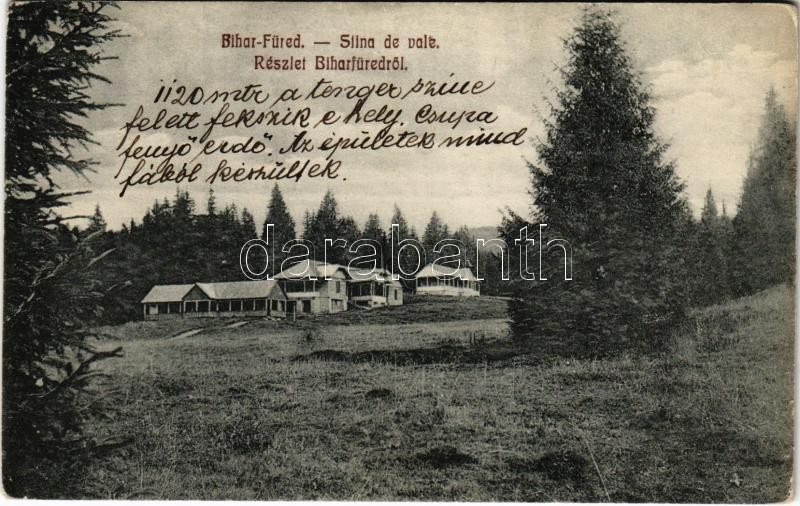 Bihar-Füred. — Stina de vale.
Részlet Biharfüredről.
1120 mtr a tenger színe
felett fekszik e hely. Csupa
fenyő erdő. Az épületek mind
fából készültek.
darabanth